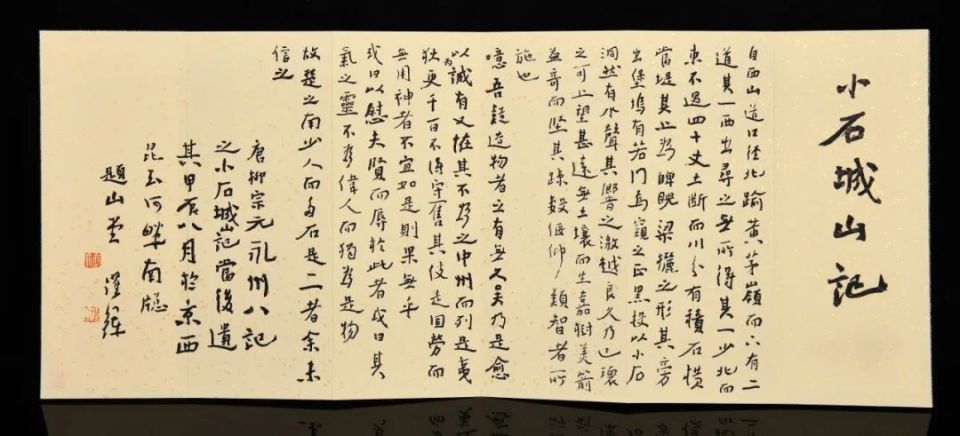 小石城山記
自西山道口徑北踰黃茅嶺而下有二
道其一西出尋之無所得其一少北而
東不過四十丈土斷而川分有積石橫
當堤其上为睥睨梁欐之形其旁
出堡塢有若門焉窺之正黑投以小石
洞然有水聲其響之激越良久乃已環
之可上望甚遠無土壤而生嘉樹美箭
益奇而堅其疎數偃仰類智者所
施也
噫吾疑造物者之有無久矣乃是愈
以为誠有又怪其不为之中州而列是夷
狄更千百不得售其伎是固勞而
無用神者不宜如是則果無乎
或曰以慰夫賢而辱於此者或曰其
氣之靈不为偉人而獨为是物
故楚之南少人而多石是二者余未
信之
唐柳宗元永州八記
之小石城山記當後遺
其甲辰八月於京西
昆玉河畔南牕
題山堂